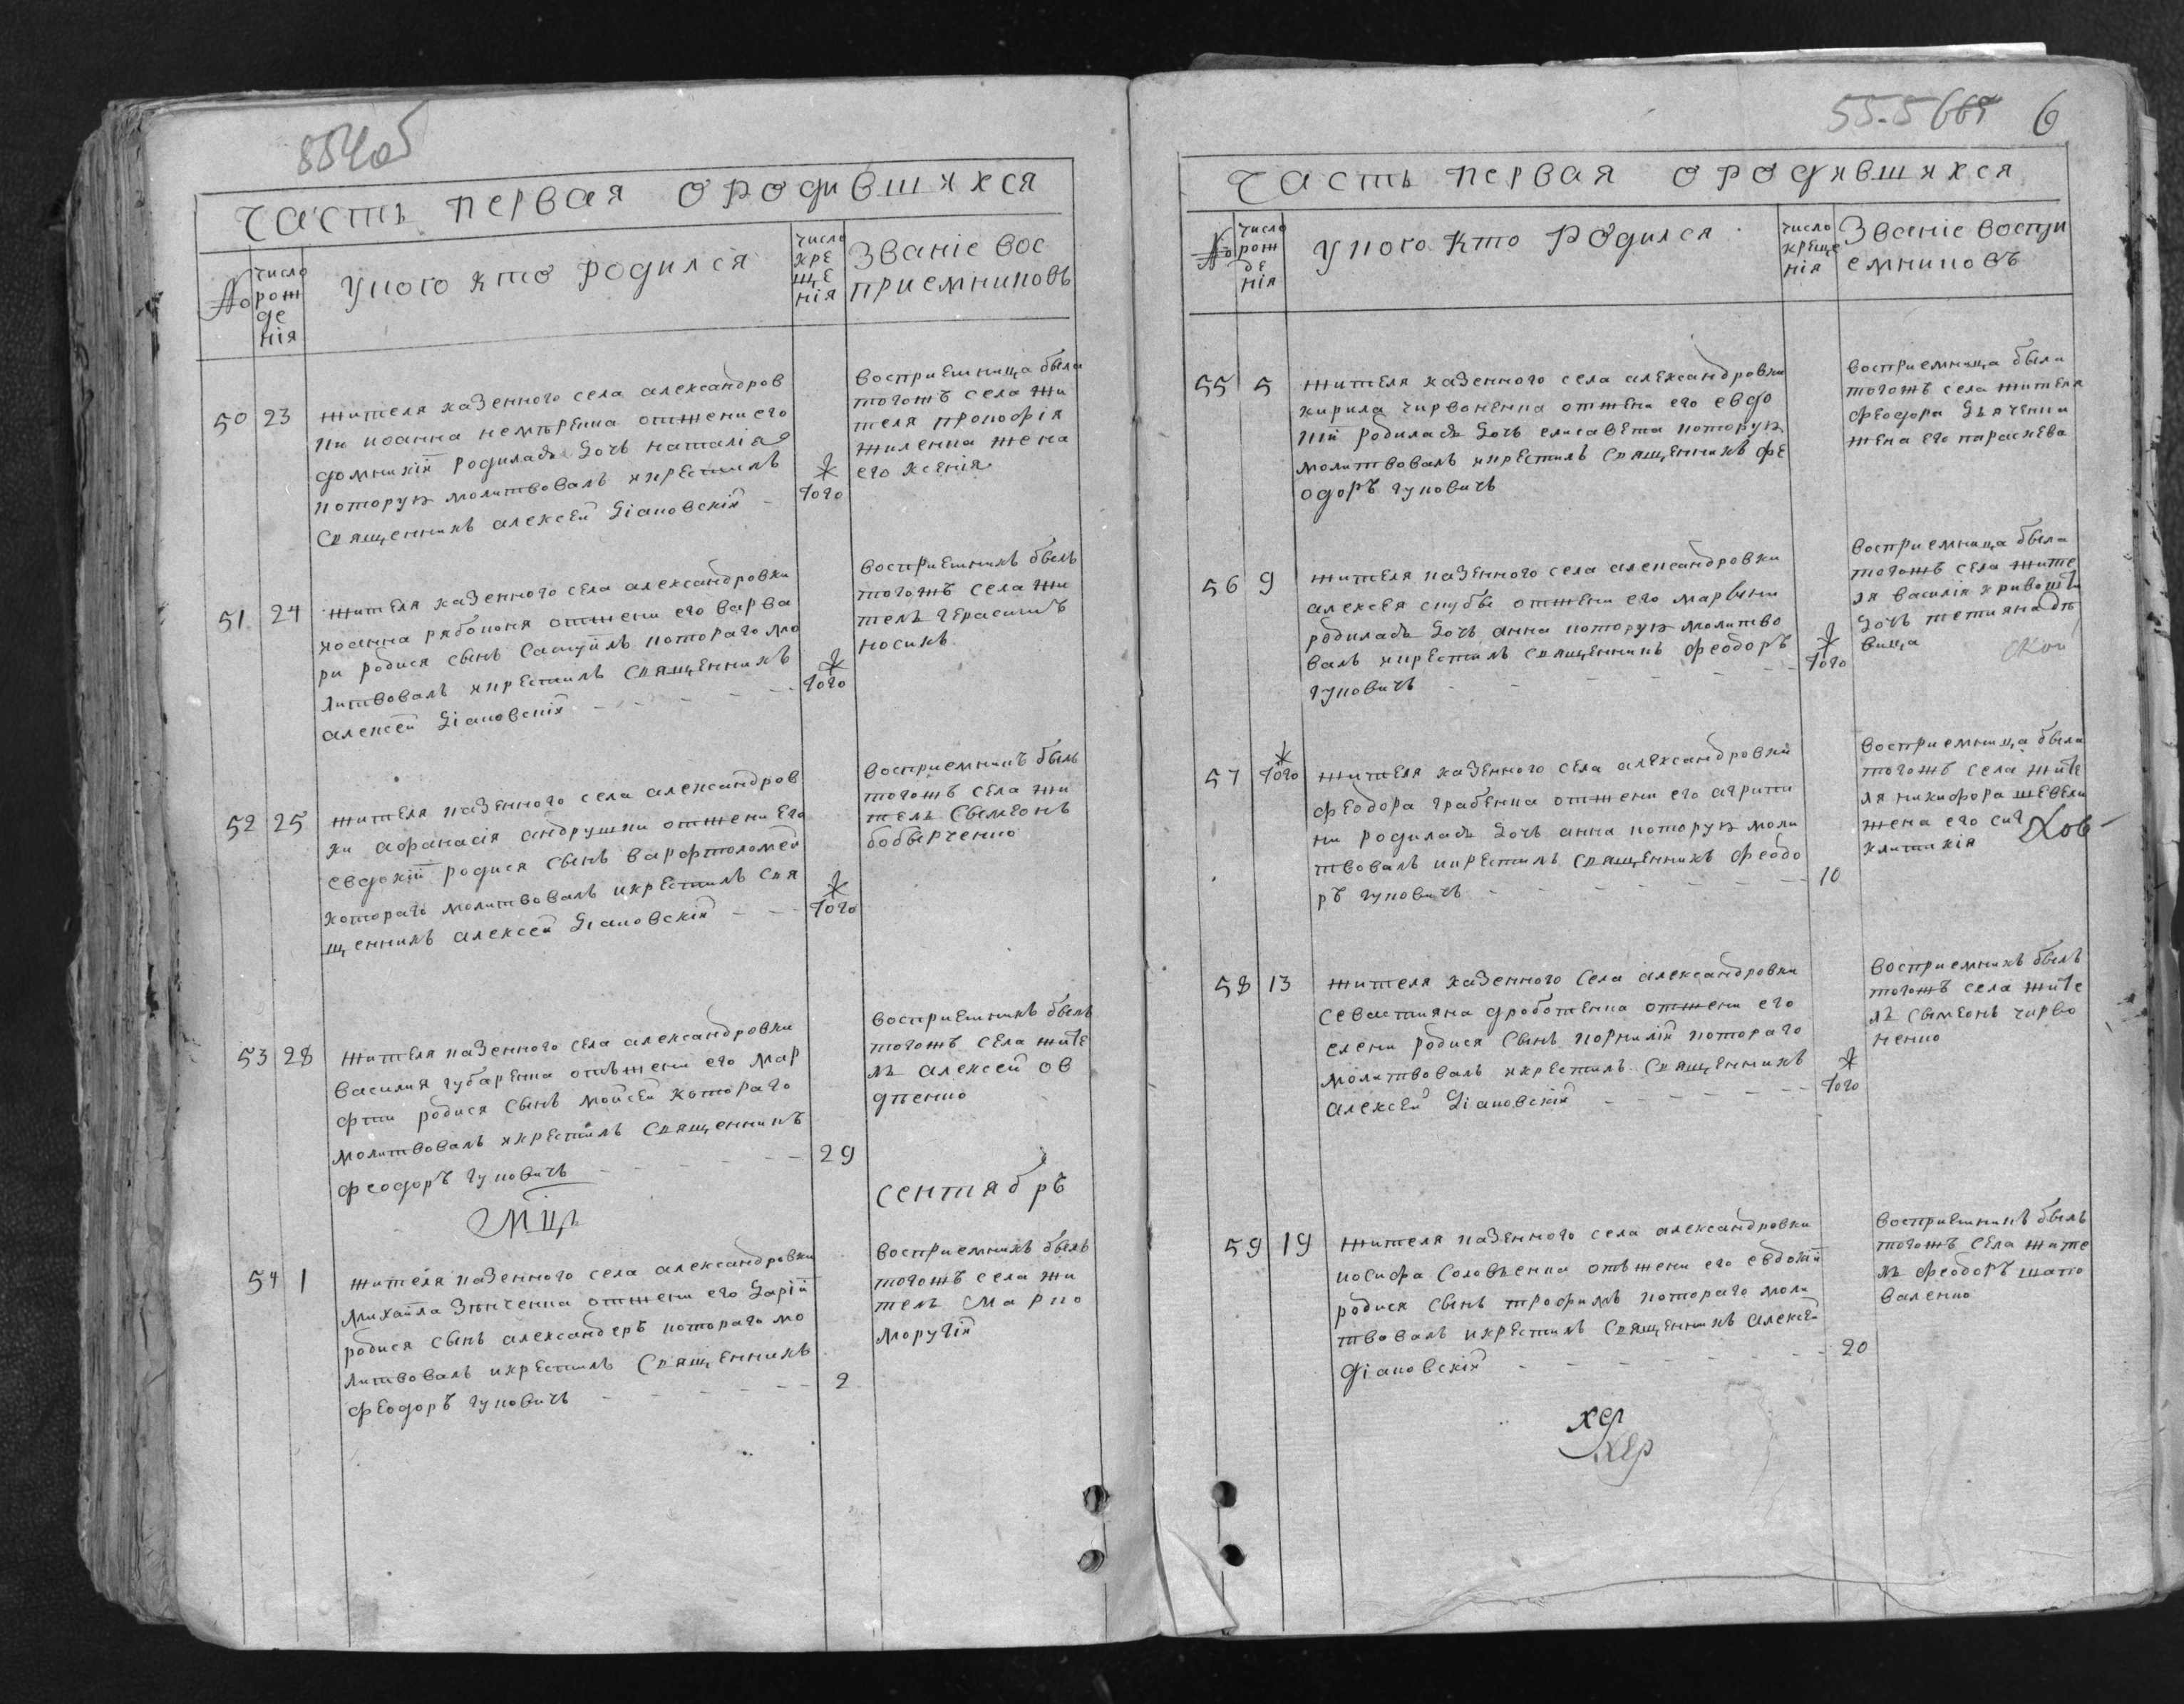 554об
Часть первая ородившихся
№
число
рож
де
нія
Укого кто родился
число
кре
ще
нія
Званіе вос
приемниковъ
50
23
жителя казенного села александров
ки иоанна немъренка отжени его
домникіи родилась дочь наталія
которую молитвовалъ икрестилъ
Священникъ алексей Діановскій
Того
восприемница была
тогожъ села жи
теля прокофія
жиленка жена
его ксенія
51
24
жителя казенного села александровки
иоанна рябоконя отжени его варва
ри родися сынъ Самуилъ котораго мо
литвовалъ икрестилъ Священникъ
алексей Діановскій
Того
восприемникъ былъ
тогожъ села жи
тель герасимъ
носикъ
52
25
жителя казенного села александров
ки афанасія андрушки отжени его
евдокіи родися сынъ варфтоломей
котораго молитвовалъ икрестилъ Свя
щенникъ алексей Діановскій
Того
восприемникъ былъ
тогожъ села жи
тель Сымеонъ
бобырченко
53
28
жителя казенного села александровки
василия губаренка отъжени его мар
фти родися сынъ мойсей котораго
молитвовалъ икрестилъ Священникъ
феодоръ гуковичъ
29
восприемникъ былъ
тогожъ села жите
ль алексей ов
дненко
Мцъ
сентябръ
54
1
жителя казенного села александровки
михайла Зѣнченка отжени его Даріи
родися сынъ александеръ котораго мо
литвовалъ икрестилъ Священникъ
феодоръ гуковичъ
2
восприемникъ былъ
тогожъ села жи
тель Марко
моругій
55-5
6
Часть первая ородившихся
№
число
рож
де
нія
Укого кто Родился
число
креще
нія
Званіе воспри
емниковъ
55
5
жителя казенного села александровки
кирила чирвоненка отжени его евдо
кіи родилась дочь елисавета которую
молитвовалъ икрестилъ Священникъ фе
одоръ гуковичъ
восприемница была
тогожъ села жителя
феодора Дьяченка
жена его параскева
56
9
жителя казенного села александровки
алексея скубы отжени его марвины
родилась дочь анна которую молитво
валъ икрестилъ Священникъ феодоръ
гуковичъ
Того
восприемница была
тогожъ села жите
ля василія
дочь тетияна дѣ
вица
57
Того
жителя казенного села александровки
феодора грабенка отжени его агрипи
ни родилась дочь анна которую моли
твовалъ икрестилъ Священникъ феодо
ръ гуковичъ
10
восприемница была
тогожъ села жите
ля никифора шевели
жена его сиг
клитикія
58
13
жителя казенного Села александровки
Севастияна дроботенка отжени его
елени родися сынъ корнилій котораго
молитвовалъ икрестилъ Священникъ
алексей Діановскій
Того
восприемникъ былъ
тогожъ села жите
ль сымеонъ чирво
ненко
59
19
жителя казенного села александровки
иосифа Соловъенка отъжени его евдокіи
родися сынъ трофимъ котораго моли
твовалъ икрестилъ Священникъ алексей
Діановскій
20
восприемникъ былъ
тогожъ села жите
ль феодоръ шапо
валенко
хер
хер